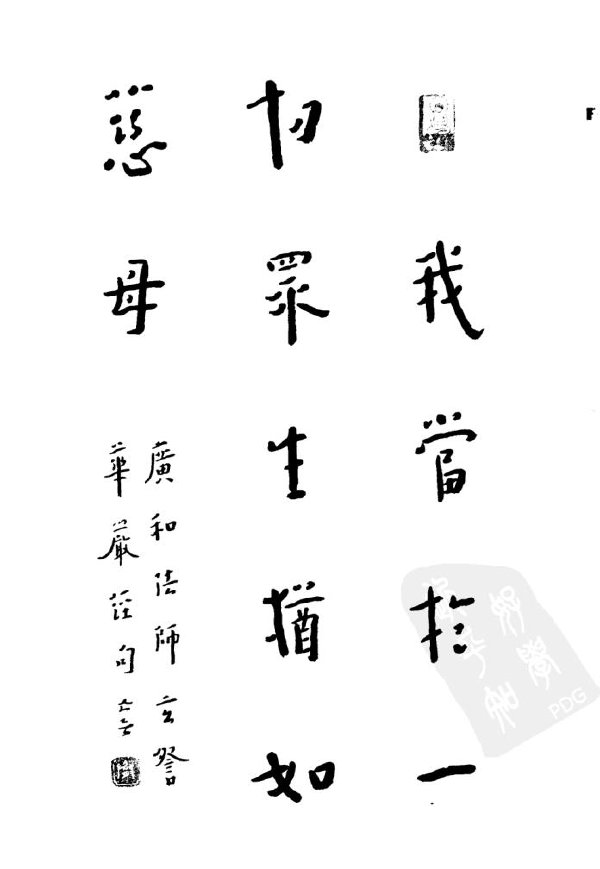 我當於一
切眾生猶如
慈母
廣和法師玄詧
華嚴經句亡言
PDG